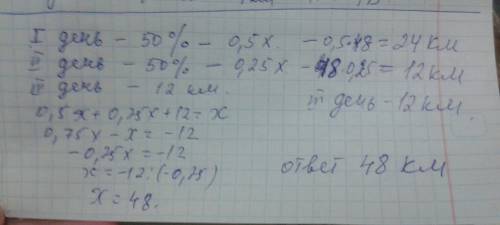 I день – 50% – 0,5x. – 0,5·48 = 24 км
II день – 50% – 0,25x – 48·0,25 = 12 км
III день – 12 км. III день – 12 км
0,5x + 0,25x + 12 = x
0,75x – x = –12
– 0,25x = –12
x = –12 : (–0,25)
x = 48.
ответ 48 км